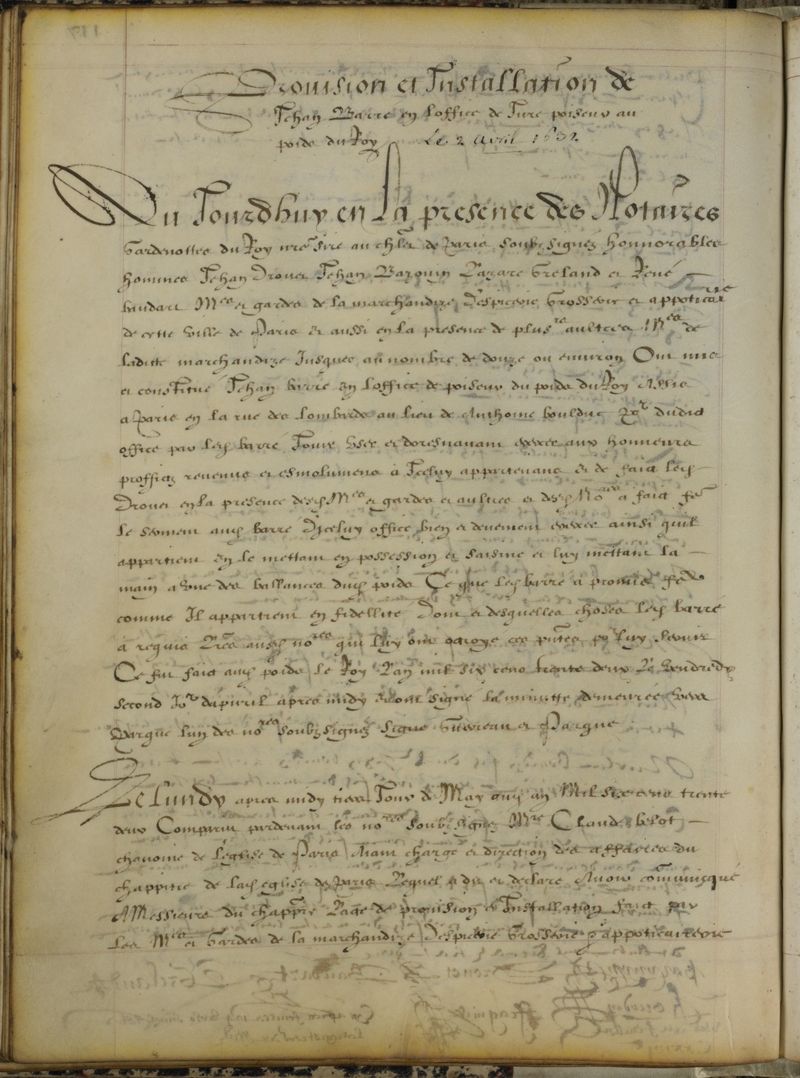 Prouision et Installation de
Jehan Barre en Loffice de Juré poiseur au
poids du Roy Le 2 auril 1632
Du Jourdhuy en La presence des Notaires
Gardenottes du Roy nre sire au chlet de Paris soubzsignez honnorables
hommes Jehan Drouet Jehan Lazare et René
Mes et gardes de la marchandize Despicerie Grosserie et appoticairie
de cette Ville de Paris Et aussi en la presence de plusrs aultres Mes de
ladicte marchandize Jusques au nombre de douze ou enuiron Ont mis
et constitué Jehan barre En Loffice de poiseur du poids du Roy Assis
a Paris en la rue des Lombards au lieu de Anthoine boulduc dudict
office par led barre Jouir Vser et doresnauant exercer aux honneurs
proffictz reuenus et esmolumens a Jceluy appartenans Et de faict led
Drouet en la presence desd Mes et gardes et aultres et desd Nores a faict fe
le serment aud barre Djceluy office bien et deuement exercer ainsi quil
appartient En le mettant en possession et saisine et luy mettant la
main a Vne des ballances dud poids Ce que led barre a promis fe
comme Il appartient en fidellité Dont et desquelles choses led barre
a requis ausd nores qui luy ont octroyé ces pntes pr luy seruir
Ce fut faict aud poids le Roy Lan mil six cens trente deux Le Vendredy
second Jor dapuril apres midy Et ont signé la minutte demeuree Vers
Parque lun des nores soubzsignez Signé et Parque
Le Lundy apres midy tiers Jour de May aud an Mil six cens trente
deux Comparut pardeuant les nores soubzsignez Mre Claude belot
chanoine de leglise de Paris Aiant charge et direction des affaires du
chappitre de lad eglise de Paris Lequel a dit et declaré Auoir comunicqué
A Messieurs du chappre Lacte de prouision et Installation faict par
Les Mes et Gardes de la marchandize Despicerie Grosserie appoticairerie